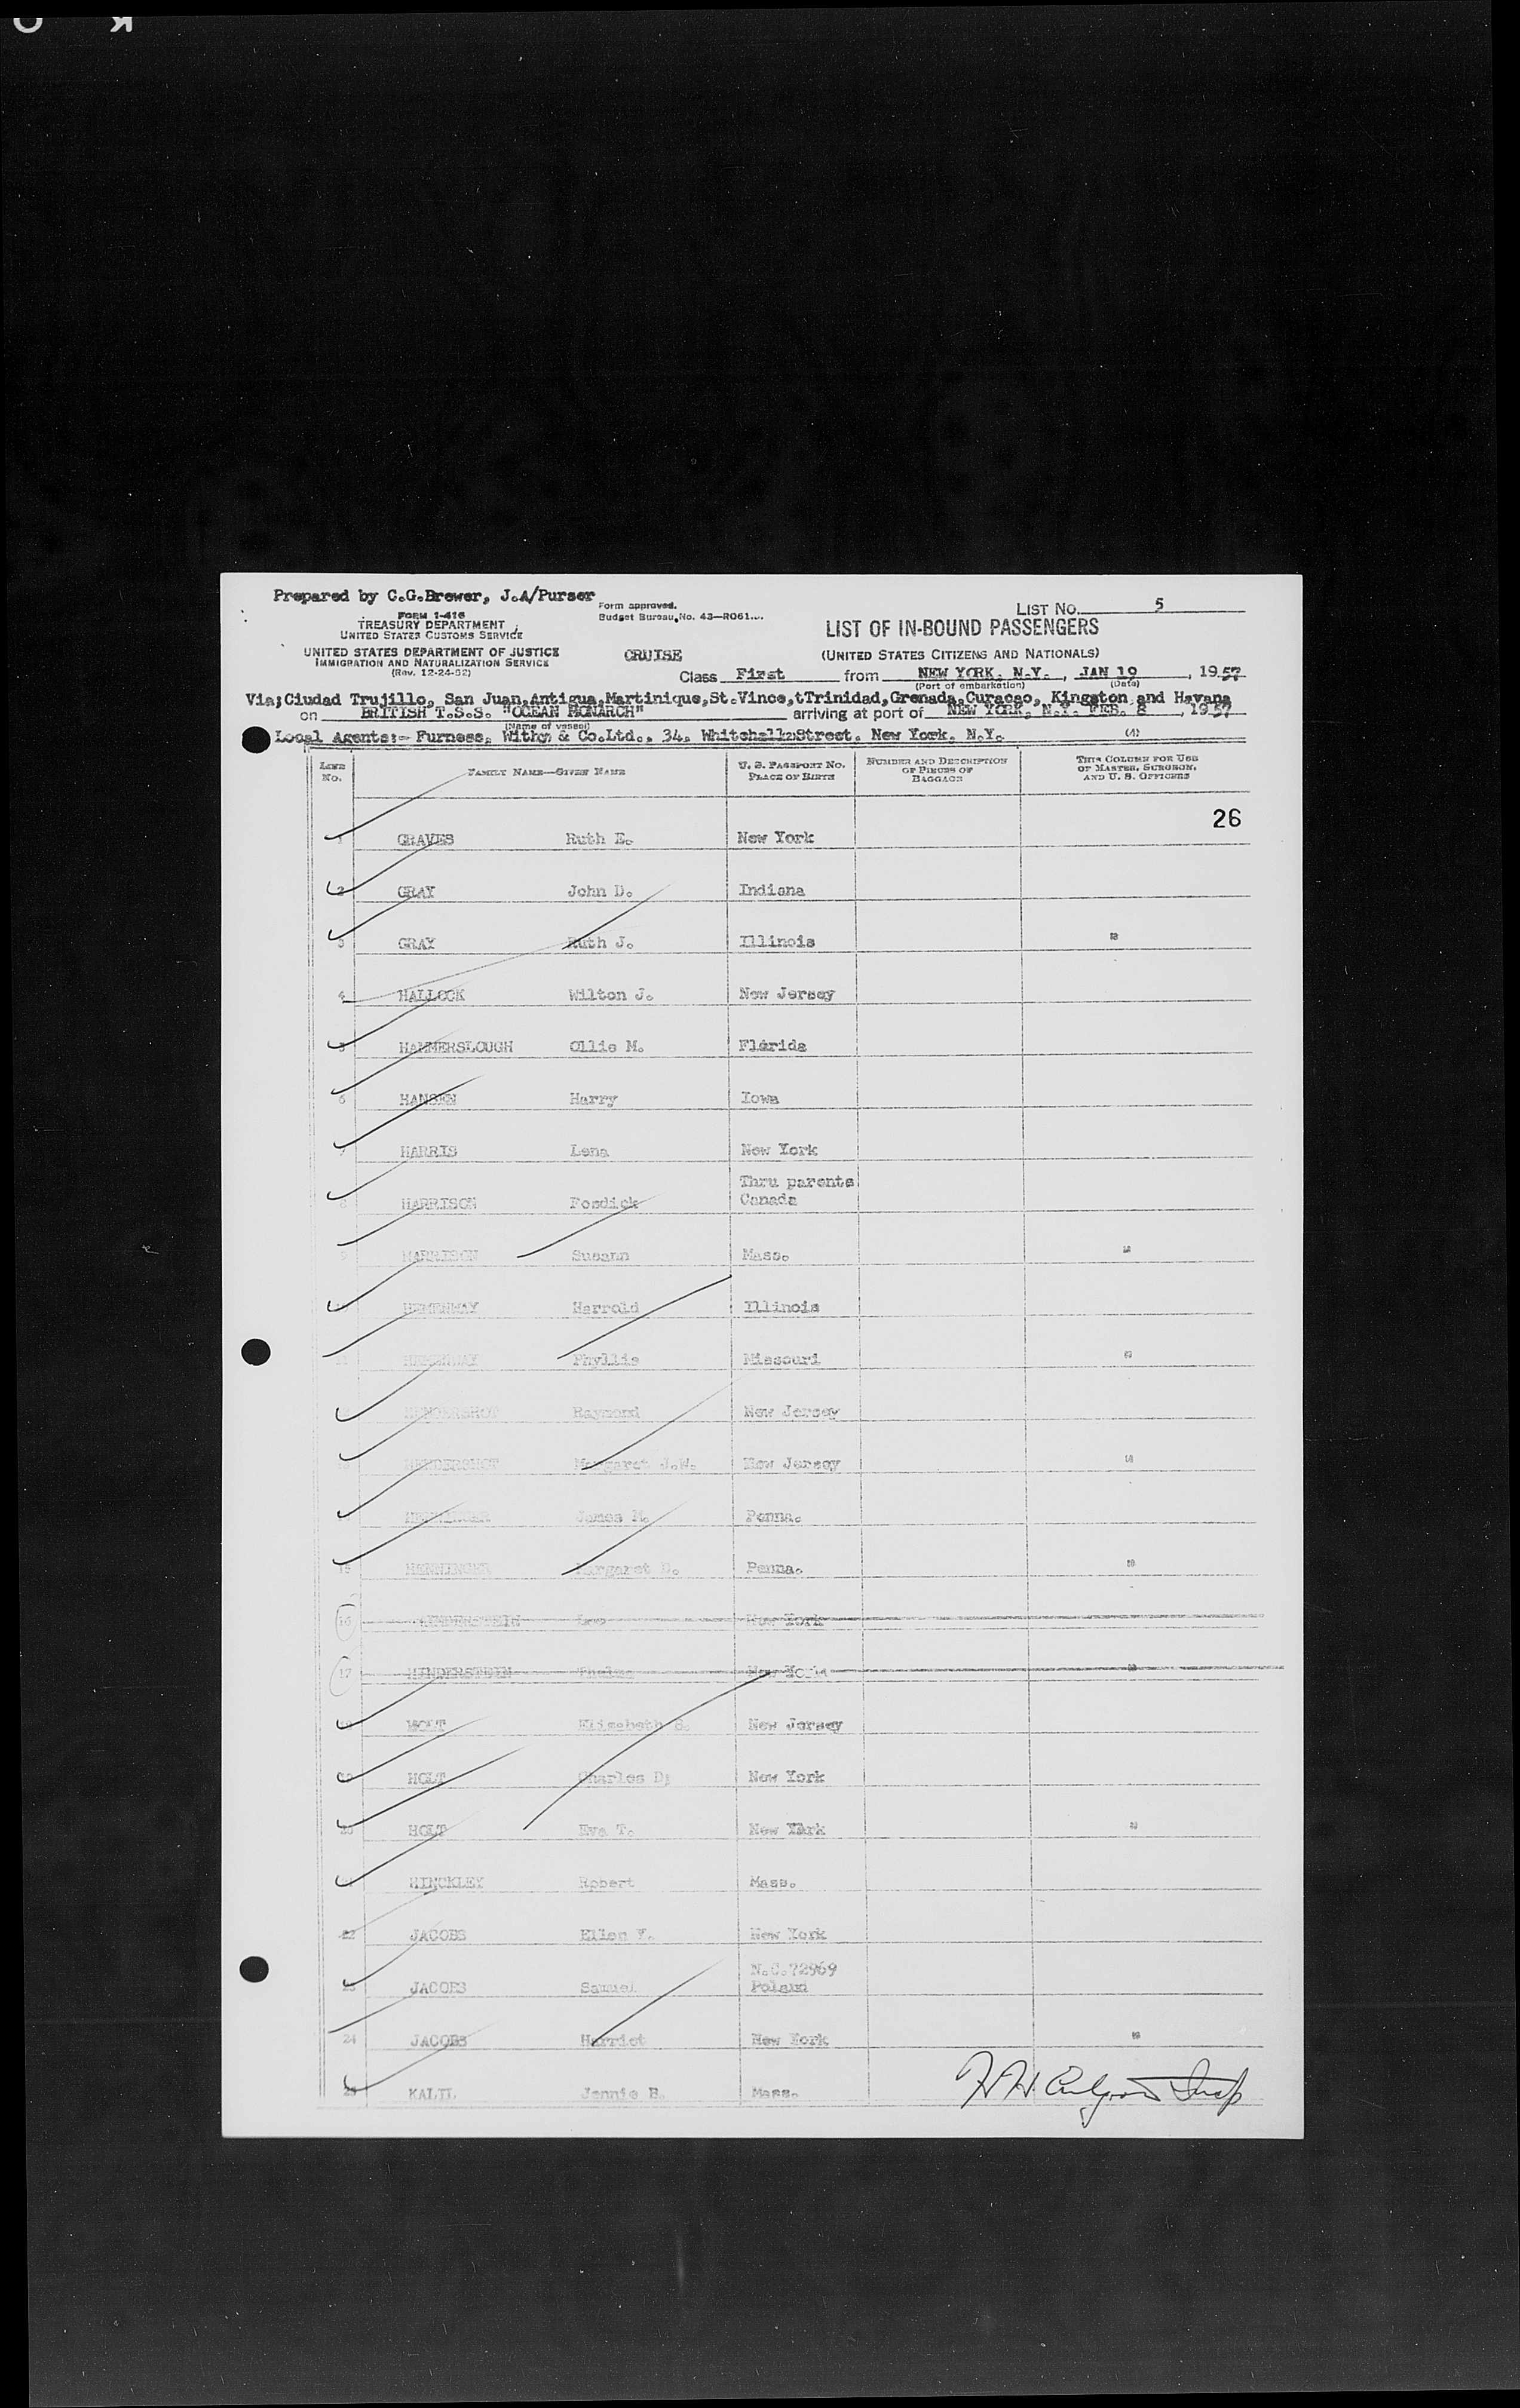 Prepared by C.G.Brewer, J.A/Purser
Form approved.
Budget Bureau No. 43—R061
LIST No. 5
FORM I-416
TREASURY DEPARTMENT
UNITED STATES CUSTOMS SERVICE
LIST OF IN-BOUND PASSENGERS
UNITED STATES DEPARTMENT OF JUSTICE
IMMIGRATION AND NATURALIZATION SERVICE
(Rev. 12-24-52)
CRUISE
(UNITED STATES CITIZENS AND NATIONALS)
Class First from NEW YORK, N.Y., JAN 19, 1957
(Port of embarkation) (Date)
Via;Ciudad Trujillo, San Juan,Antigua,Martinique,St.Vince,tTrinidad,Grenada,Curacao, Kingston and Havana
on BRITISH T.S.S. "OCEAN MONARCH" arriving at port of NEW YORK, N.Y. FEB. 8, 1957
(Name of vessel)
Local Agents:- Furness, Withy & Co.Ltd., 34, Whitehall Street, New York, N.Y.
(4)
LINE No. FAMILY NAME—GIVEN NAME U. S. PASSPORT No. PLACE OF BIRTH NUMBER AND DESCRIPTION OF PIECES OF BAGGAGE THIS COLUMN FOR USE OF MASTER, SURGEON, AND U. S. OFFICERS
26
1 GRAVES Ruth E. New York
2 GRAY John D. Indiana
3 GRAY Ruth J. Illinois
4 HALLOCK Wilton J. New Jersey
5 HAMMERSLOUGH Ollie M. Flérida
6 HANSEN Harry Iowa
7 HARRIS Lena New York
Thru parents
8 HARRISON Fosdick Canada
9 HARRISON Susann Mass.
HEMENWAY Harrold Illinois
11 HEMENWAY Phyllis Missouri
HENDERSHOT Raymond New Jersey
13 HENDERSHOT Margaret J.W. New Jersey
HENNINGER James M. Penna.
15 HENNINGER Margaret Penna.
16 HINDERSTEIN Leo New York
17 HINDERSTEIN Thelma New York
18 HOLT Elizabeth New Jersey
19 HOLT Charles D; New York
20 HOLT Eva T. New YArk
21 HINCKLEY Robert Mass.
22 JACOBS Ellen New York
N.C.72969
23 JACOBS Samuel Poland
24 JACOBS Harriet New York
25 Jennie B. Mass.
Insp